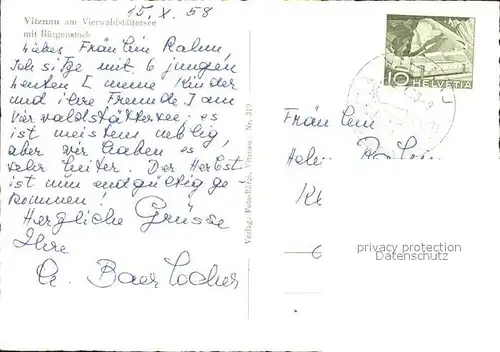 15. X. 58
Vitznau am Vierwaldstättersee
mit Bürgenstock
Liebes Fräulein Rahm,
Ich sitze mit 6 jungen
Leuten [meine Kinder
und ihre Freunde] am
Vierwaldstättersee; es
ist meistens neblig,
aber wir haben es
sehr heiter. Der Herbst
ist nun endgültig ge-
kommen!
Herzliche Grüsse
Ihre
Baer Locher
Verlag: Foto-Bürgi, Vitznau No. 319
10 HELVETIA
Fräulein
privacy protection
Datenschutz